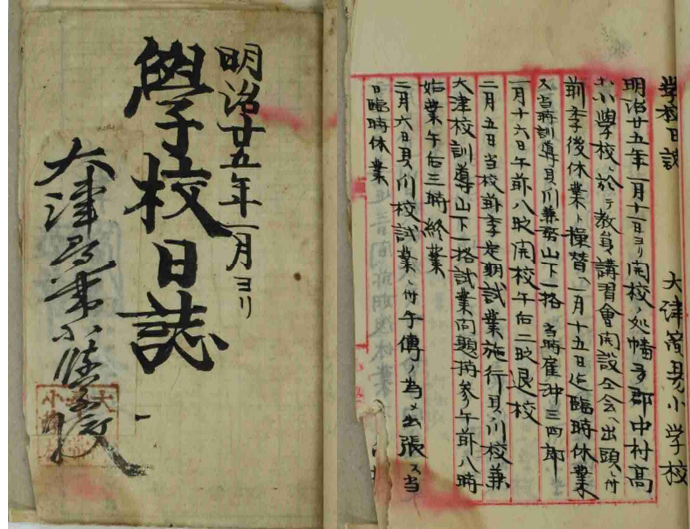 明治廿五年一月ヨリ
學校日誌
大津尋常小學校
學校日誌
大津尋常小学校
明治廿五年一月十一日ヨリ開校ノ処幡多郡中村高
等小學校ニ於テ教員講習會開設仝会ヘ出頭ニ付
前季後休業ト操替一月十五日迄臨時休業
当時訓導貝川兼務山下一格 当時雇沖三四郎
一月十六日午前八時開校午后二時退校
二月五日当校前季定期試業施行貝川校兼
大津校訓導山下一格試業問題携参午前八時
始業午后三時終業
二月六日貝川校試業ニ付午傳ノ為メ出張ス当
日臨時休業